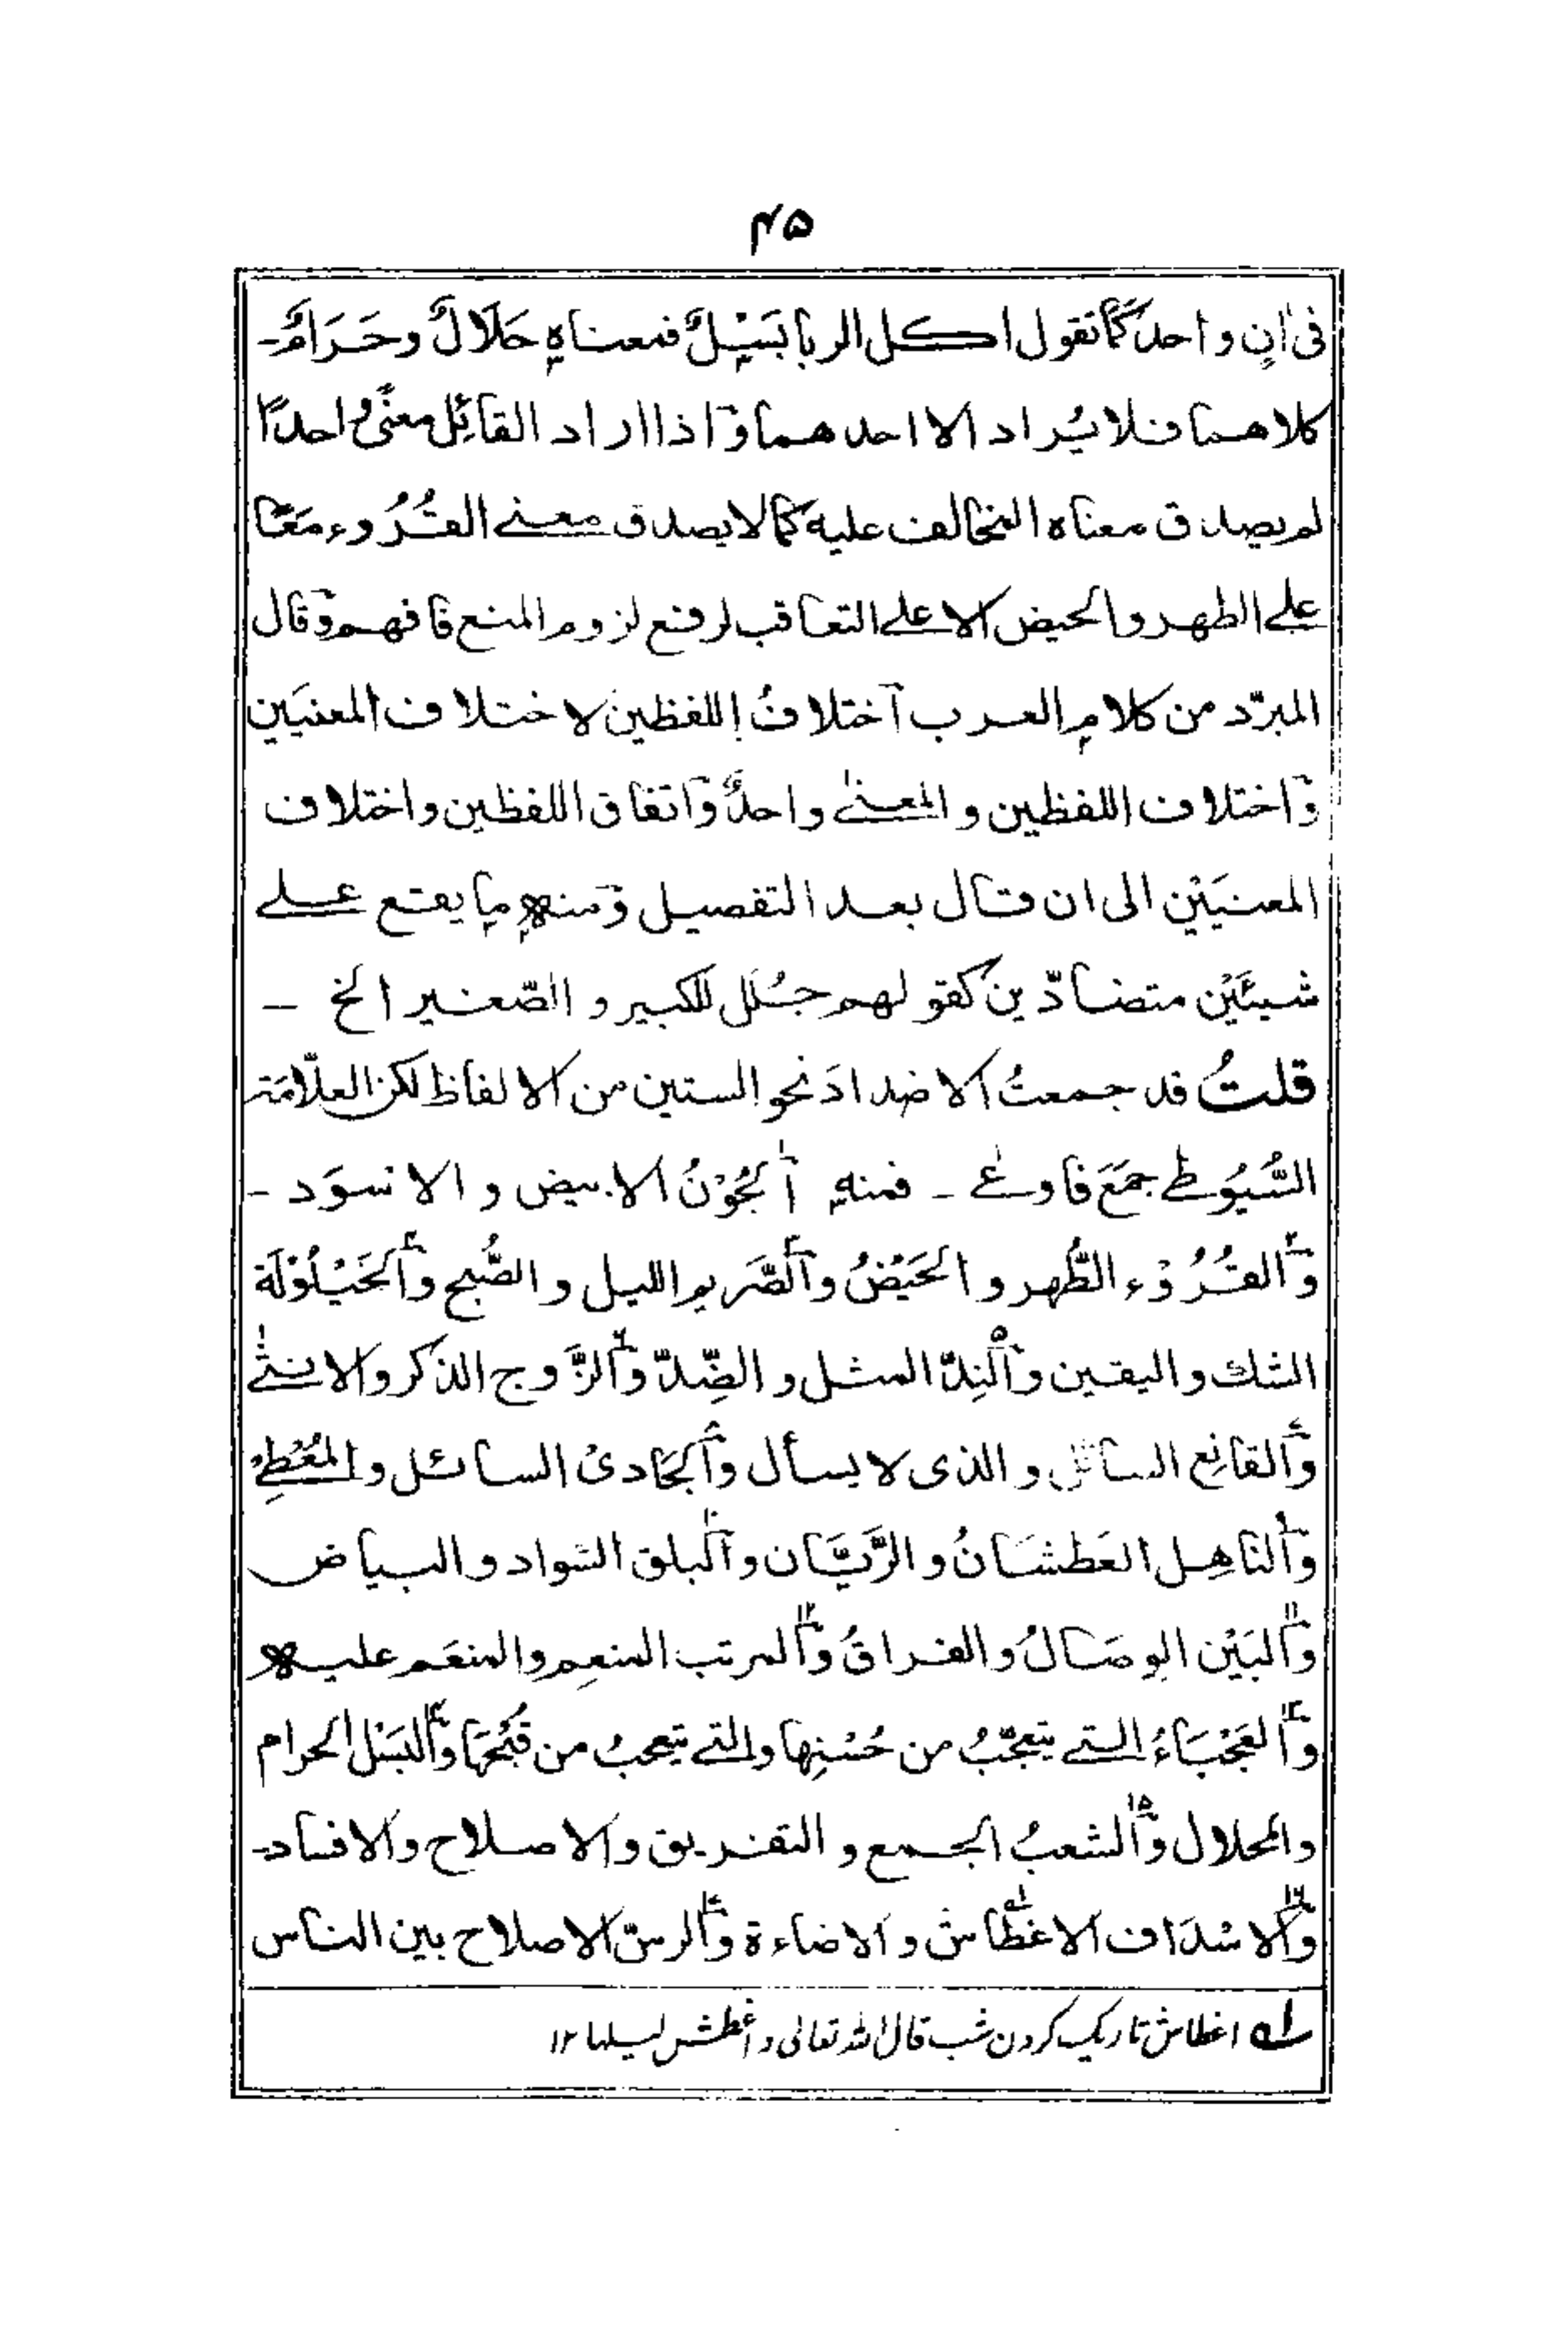 ۴۵
فى اٰنٍ واحد كمَا تقول اكل الربا بَسِيْلٌ فمعناهٖ حَلَالٌ وحَرَامٌ۔
كلاهما فلا يُراد الا احدهما وَاذا اراد القائِل معنًى واحدًا
لم يصدق معناه المخالف عليه كما لا يصدق معنے القُرُوء معًا
علے الطهر والحيض الا علے التعاقب لرفع لزوم المنع فافهم وَقال
المبرّد من كلامِ العرب اختلافُ اللفظين لاختلاف المعنيَين
وَاختلاف اللفظين والمعنےٰ واحدٌ وَاتفاق اللفظين واختلاف
المعنيَيْن الى ان قال بعد التفصيل وَمنهٖ ما يقع علے
شيئَيْن متضادّين كقولهم جُلَل للكبير والصّغير الخ ۔
قلتُ قد جمعتُ الاضدادَ نحو الستين من الالفاظ لكن العلّامَة
السُّيُوطے جمَعَ فاوعےٰ ۔ فمنهٖ الجُوْنُ الابيض والاسوَد ۔
وَالقُرُوْء الطُّهر والحَيْضُ والصَّريم الليل والصُّبح والحَيْلُوْلَة
الشك واليقين والنِدّ المثل والضِّدّ والزَّوج الذكر والانثےٰ
والقانِع السائل والذى لا يسأل والجَادىُ السائل والمُعْطِے
والناهِل العَطشَانُ والرَّيَّان والبلق السّواد والبياض
والبَيْن الوِصَالُ والفراقُ والمرتب المنعِم والمنعَم عليهٖ
والعَجْبَاءُ التے يتعجّبُ من حُسْنِها والتے يتعجبُ من قبْحُهَا والبَسْل الحرام
والحلال والشعبُ الجمع والتفريق والاصلاح والافساد۔
والاسْدَاف الاغطَاش والاضاءة والرسّ الاصلاح بين الناس
لہ اغطاش تاریک کردن شب قال اللہ تعالی واغطش لیلها ۱۲